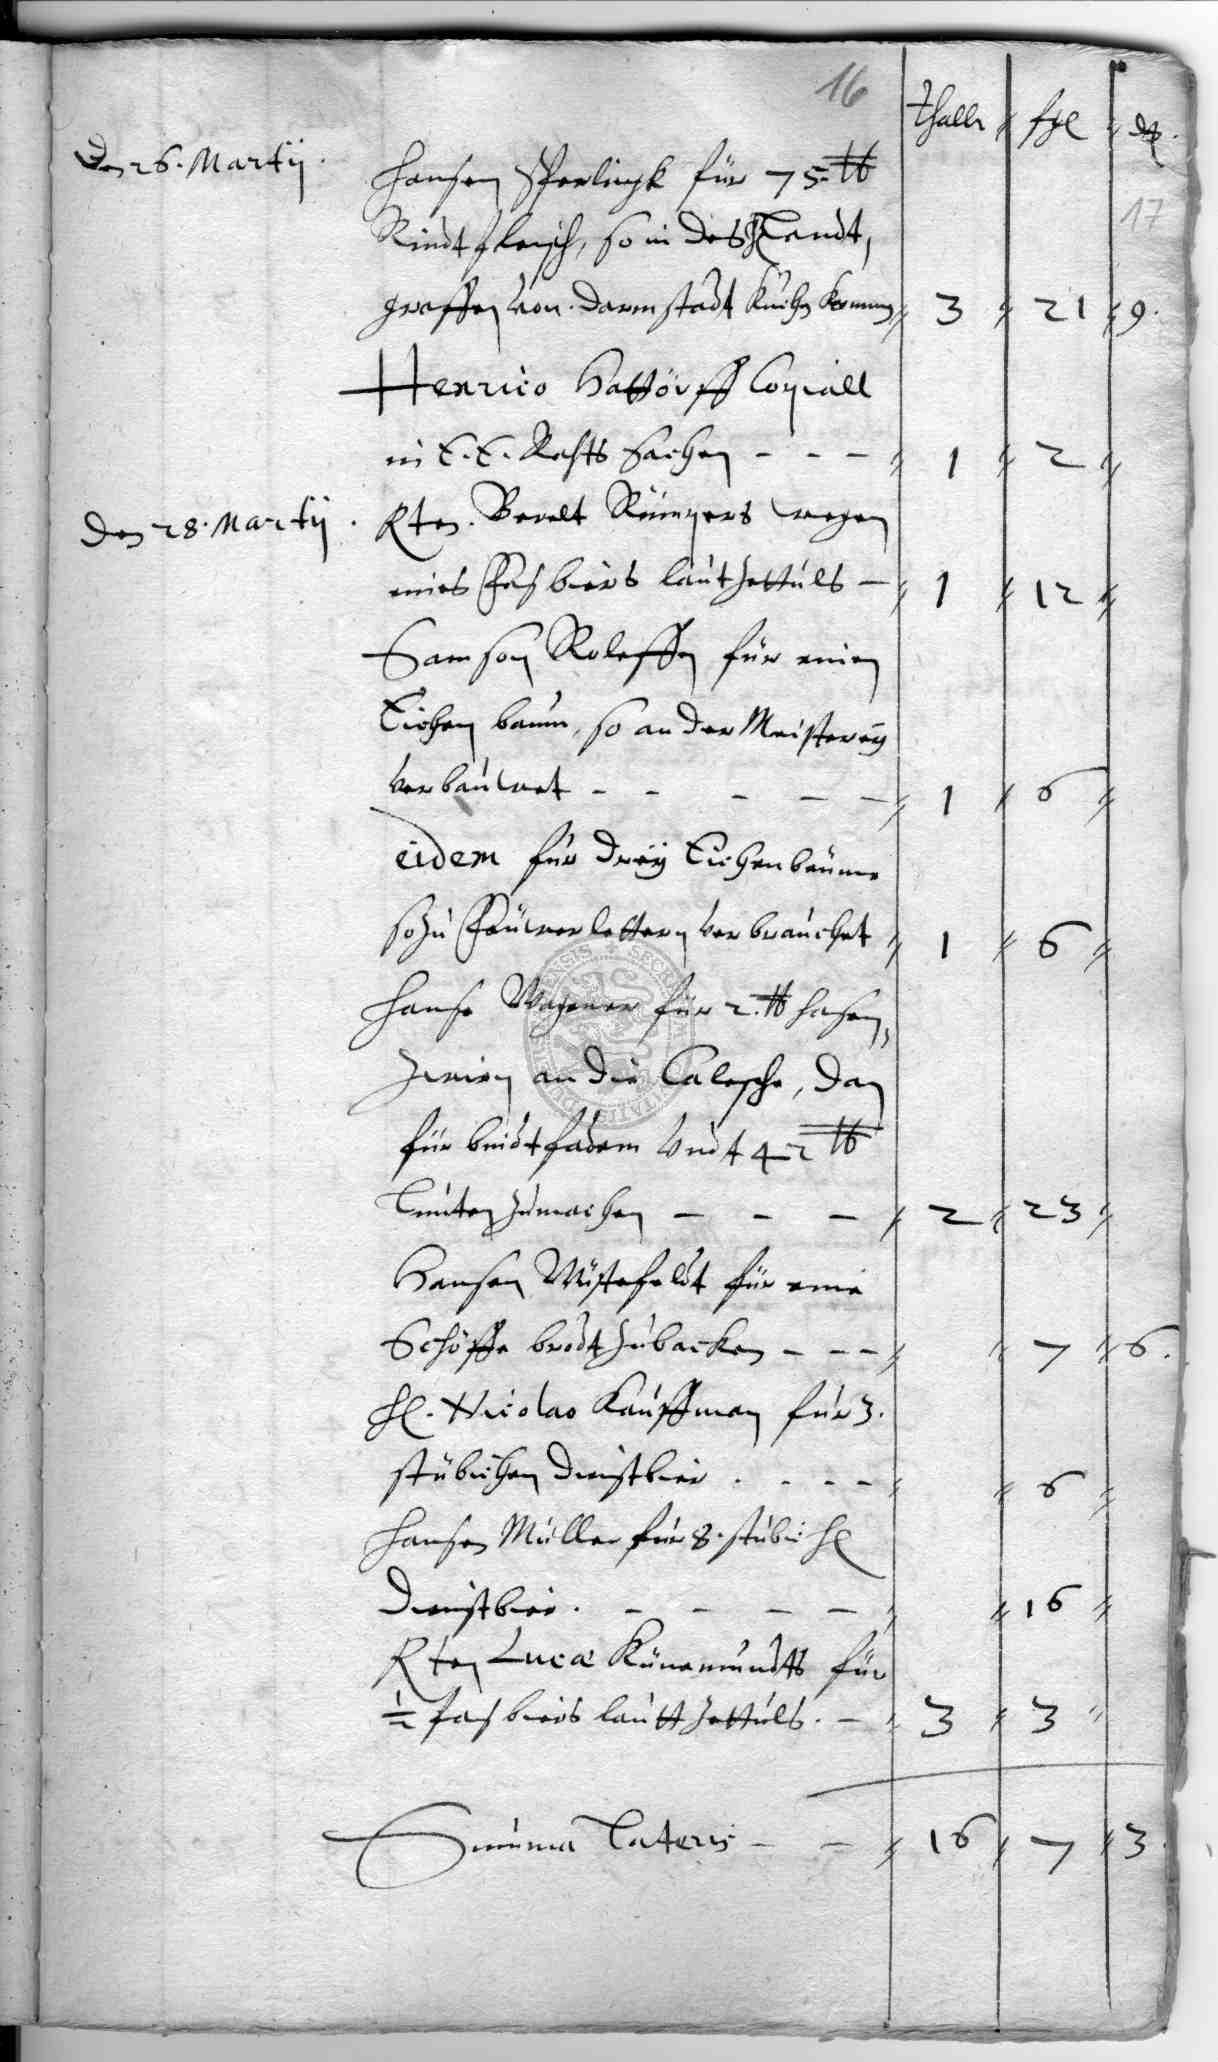 16
thaler fgl ₰
17
Den 26. Martij. Hansen Sperlingk für 75. ℔
Rindtfleisch, so in des H Landt,
graffen von Darmstadt Küchen kommen 3 21 9.
Henrico Hattorff Copiall
in E. E. Rahts Sachen - - - 1 2
Den 28. Martij. Rten. Berelt Rümpers wegen
eines Faß biers laut Zettuls - 1 12
Samson Roleffen für einen
Eichen baum, so an der Meisterey
verbauwet - - - - - 1 6
eidem für drey Eichenbäume
so zu Feüwer lettern verbrauchet 1 6
Hanse Wagener für 2. ℔ hasen,
zwirn an die Calesche, dan
für bindtfadem undt 42 ℔
Lunten zumachen - - - 2 23
Hansen Wüstefeldt für eine
Schöffe brodt zubacken - - - 7 6.
H. Nicolao Kauffman für 3.
stübichen Dinstbier - - - - 6
Hansen Müller für 8. stübich
Dinstbier. - - - - 16
Rten Lucæ Künemundts für
½ faß biers lautt Zettuls. - 3 3
Summa Lateris - - 16 7 3.